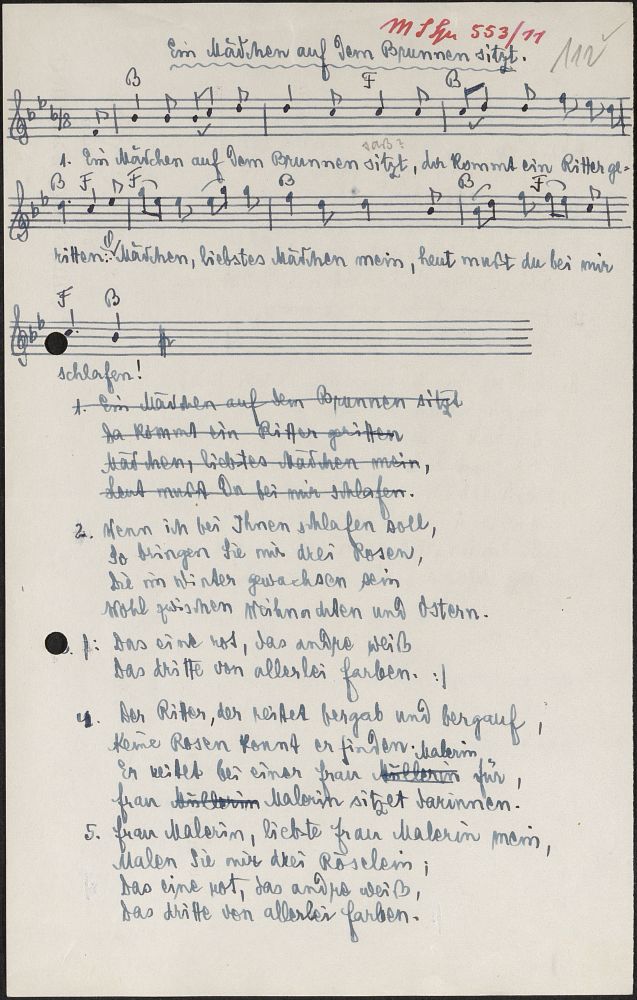 M S Gu 553/11
112
Ein Mädchen auf dem Brunnen sitzt.
B F B
6/8
saß?
1. Ein Mädchen auf dem Brunnen sitzt, der kommt ein Ritter ge-
B F F B B F
ritten. |: Mädchen, liebstes Mädchen mein, heut mußt du bei mir
F B
schlafen!
1. Ein Mädchen auf dem Brunnen sitzt
da kommt ein Ritter geritten
Mädchen, liebstes Mädchen mein,
heut mußt Du bei mir schlafen.
2. Wenn ich bei Ihnen schlafen soll,
So bringen Sie mir drei Rosen,
Die im Winter gewachsen sein
Wohl zwischen Weihnachten und Ostern.
|: Das eine rot, das andre weiß
Das dritte von allerlei Farben. :|
4. Der Ritter, der reitet bergab und bergauf,
Keine Rosen konnt er finden.
Malerin
Er reitet bei einer Frau Müllerin für,
Frau Müllerin Malerin sitzet darinnen.
5. Frau Malerin, liebste Frau Malerin mein,
Malen Sie mir drei Röselein;
Das eine rot, das andre weiß,
Das dritte von allerlei Farben.